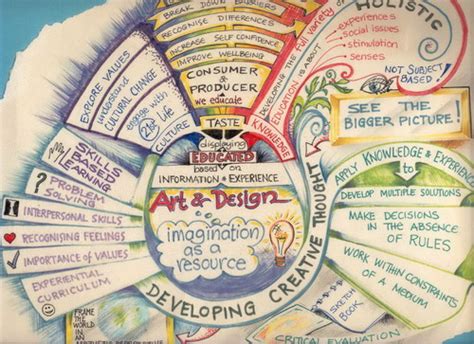 BREAK DOWN BARRIERS
RECOGNISE DIFFERENCES
INCREASE SELF CONFIDENCE
IMPROVE WELLBEING
CONSUMER
or
PRODUCER
we educate
TASTE
displaying
EDUCATED
based on
INFORMATION + EXPERIENCE
Art & Design
imagination
as a
resource
DEVELOPING CREATIVE THOUGHT
EXPLORE VALUES
understand
CULTURAL CHANGE
engage with
21st C
Life
CULTURE
SKILLS
BASED
LEARNING
? PROBLEM
SOLVING
I INTERPERSONAL SKILLS
RECOGNISING FEELINGS
IMPORTANCE of VALUES
EXPERIENTIAL
CURRICULUM
FRAME
THE WORLD
IN
AN
KNOWLEDGE
EDUCATION IS ABOUT
DEVELOPING THE Full Variety of
HOLISTIC
experiences
social issues
stimulation
senses
NOT SUBJECT
BASED!
SEE THE
BIGGER PICTURE!
APPLY KNOWLEDGE & EXPERIENCE
to
DEVELOP MULTIPLE SOLUTIONS
MAKE DECISIONS
IN THE ABSENCE
OF RULES
WORK WITHIN CONSTRAINTS
OF A MEDIUM
SKETCH
BOOK
CRITICAL EVALUATION